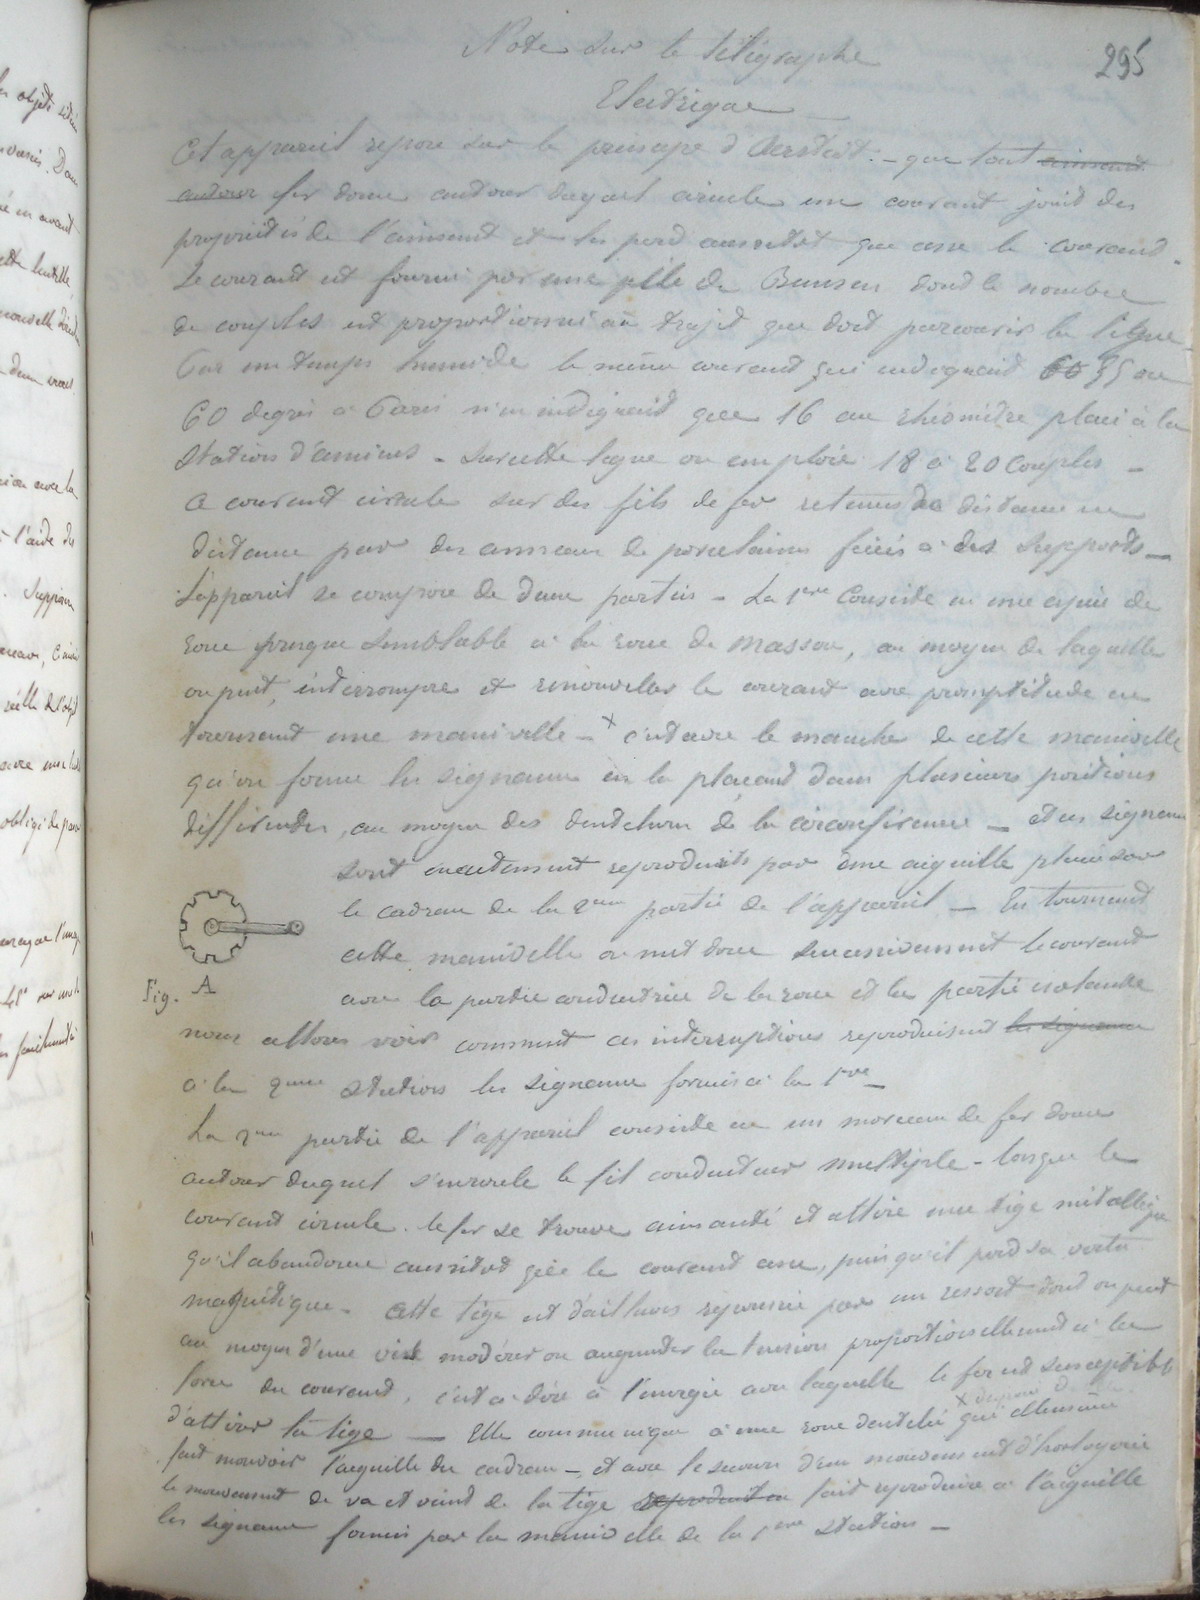 Note sur le télégraphe
295
Electrique
Cet appareil repose sur le principe d'Oerstedt : - que tout aimant
autour fer doux autour duquel circule un courant jouit des
propriétés de l'aimant et les perd aussitôt que cesse le courant.
Le courant est fourni par une pile de Bunsen dont le nombre
de couples est proportionné au trajet que doit parcourir la ligne.
Par un temps humide le même courant qui indiquait 55 ou
60 degrés à Paris n'en indiquait que 16 au rhéomètre placé à la
station d'amiens - sur cette ligne on emploie 18 à 20 couples -
Ce courant circule sur des fils de fer retenus de distance en
distance par des anneaux de porcelaine fixés à des supports -
L'appareil se compose de deux parties - La 1ere consiste en une espèce de
roue presque semblable à la roue de masson, au moyen de laquelle
on peut interrompre et renouveler le courant avec promptitude en
tournant une manivelle - x c'est avec le manche de cette manivelle
qu'on forme les signaux en la plaçant dans plusieurs positions
différentes, au moyen des dentelures de la circonférence - et ces signaux
sont exactement reproduits par une aiguille placée sur
le cadran de la 2eme partie de l'appareil - En tournant
cette manivelle on met donc successivement le courant
avec la partie conductrice de la roue et la partie isolante
Fig. A
nous allons voir comment ces interruptions reproduisent les signaux
à la 2eme station les signaux formés à la 1ere
La 2eme partie de l'appareil consiste en un morceau de fer doux
autour duquel s'enroule le fil conducteur multiple - lorsque le
courant circule le fer se trouve aimanté et attire une tige métallique
qu'il abandonne aussitôt que le courant cesse, puisqu'il perd sa vertu
magnétique - Cette tige est d'ailleurs repoussée par un ressort dont on peut
au moyen d'une vis modérer ou augmenter la tension proportionellement à la
force du courant, c'est à dire à l'énergie avec laquelle le fer est susceptible
d'attirer la tige - Elle communique à une roue dentelée qui elle même
fait mouvoir l'aiguille du cadran - et avec le secours d'un mouvement d'horlogerie
le mouvement de va et vient de la tige reproduit fait reproduire à l'aiguille
les signaux formés par la manivelle de la 1ere station -